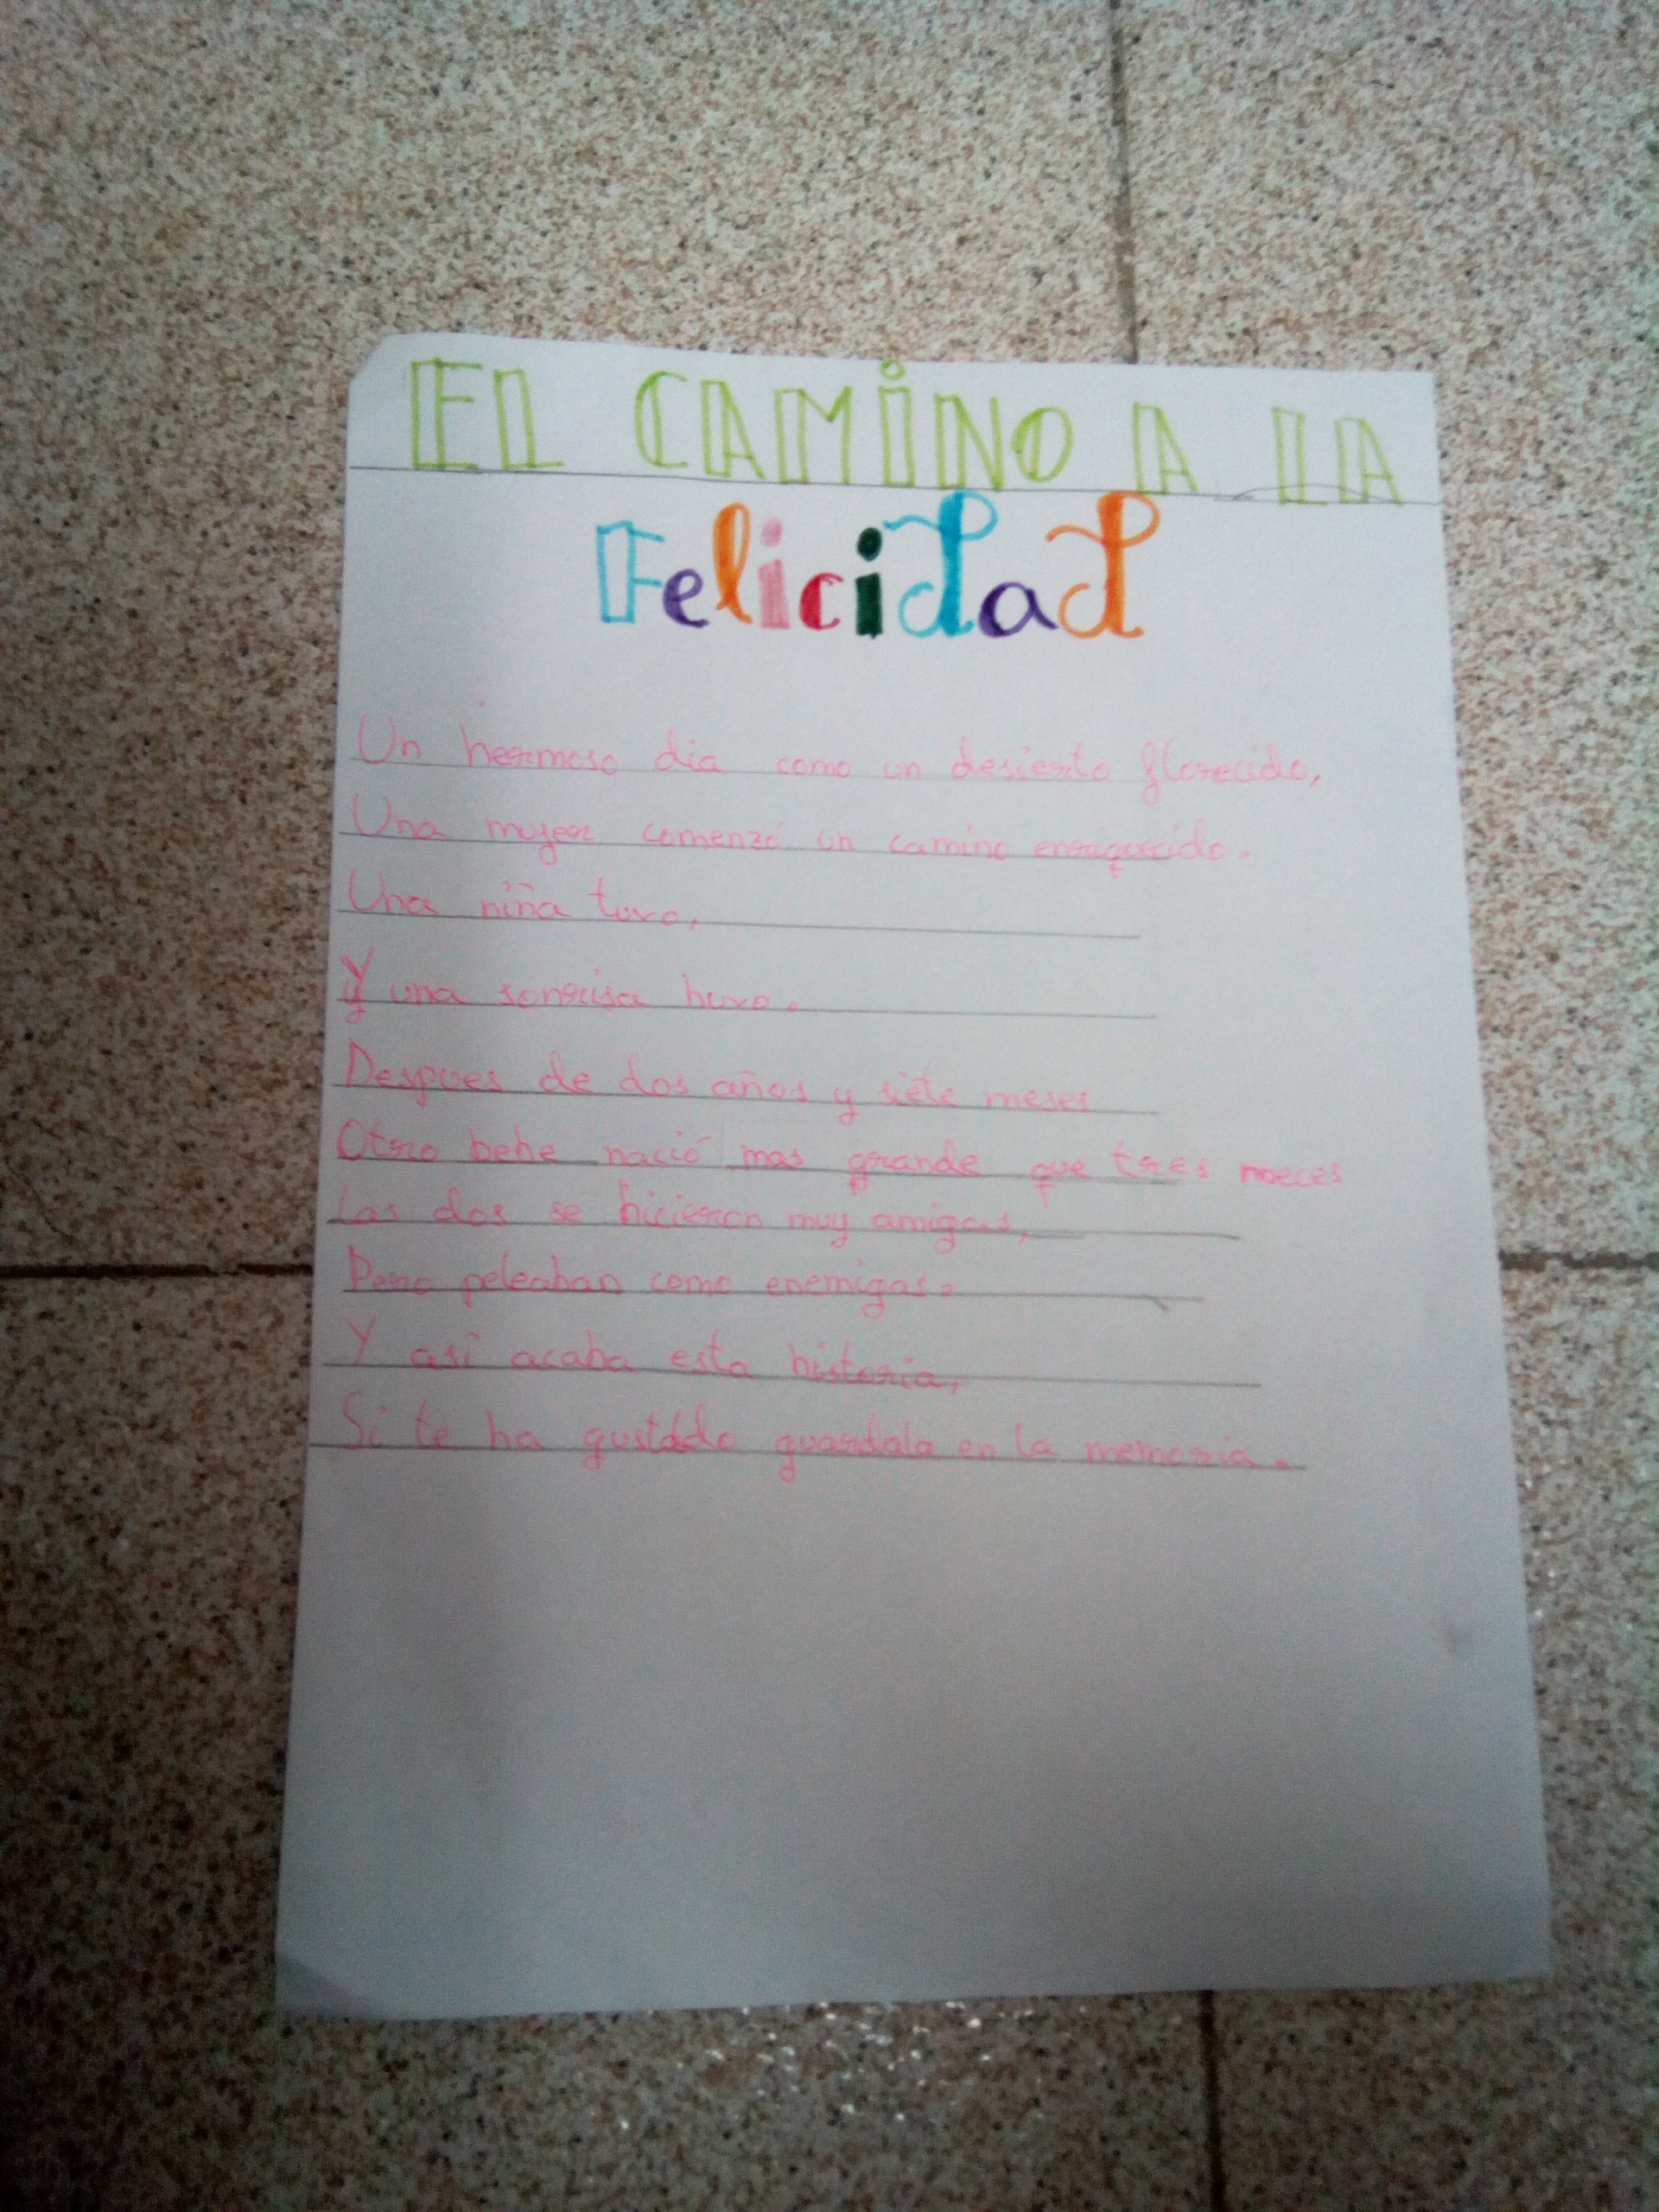 EL CAMINO A LA
Felicidad
Un hermoso dia como un desierto florecido,
Una mujer comenzó un camino enriquecido.
Una niña tuvo,
Y una sonrisa huvo.
Despues de dos años y siete meses
Otro bebe nació mas grande que tres nueces
Las dos se hicieron muy amigas,
Pero peleaban como enemigas.
Y asi acaba esta historia,
Si te ha gustado guardala en la memoria.